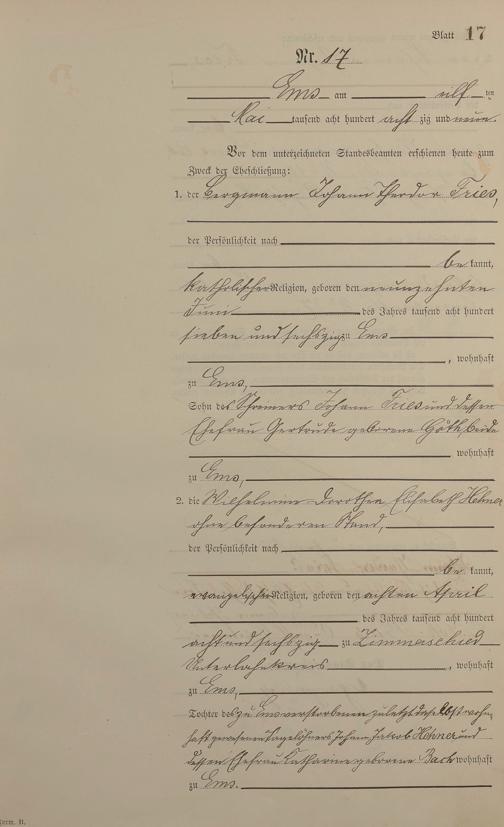 Blatt 17
Nr. 17
Ems am eilf ten
Mai tausend acht hundert acht zig und neun.
Vor dem unterzeichneten Standesbeamten erschienen heute zum
Zweck der Eheschließung:
1. der Bergmann Johann Theodor Fries,
der Persönlichkeit nach
be kannt,
katholischer Religion, geboren den neunzehnten
Juni des Jahres tausend acht hundert
sieben und sechszig zu Ems
, wohnhaft
zu Ems,
Sohn des Schreiners Johann Fries und dessen
Ehefrau Gertrude geborene Göth, beide
wohnhaft
zu Ems,
2. die Wilhelmine Dorothea Elisabeth Hehner
ohne besonderen Stand,
der Persönlichkeit nach
be kannt,
evangelischer Religion, geboren den achten April
des Jahres tausend acht hundert
acht und sechszig zu Zimmerschied
Unterlahnkreis , wohnhaft
zu Ems,
Tochter des zu Ems verstorbenen zuletzt daselbst wohn-
haft gewesenen Tagelöhners Johann Jakob Hehner und
dessen Ehefrau Katharine geborene Bach wohnhaft
zu Ems.
Form. B.